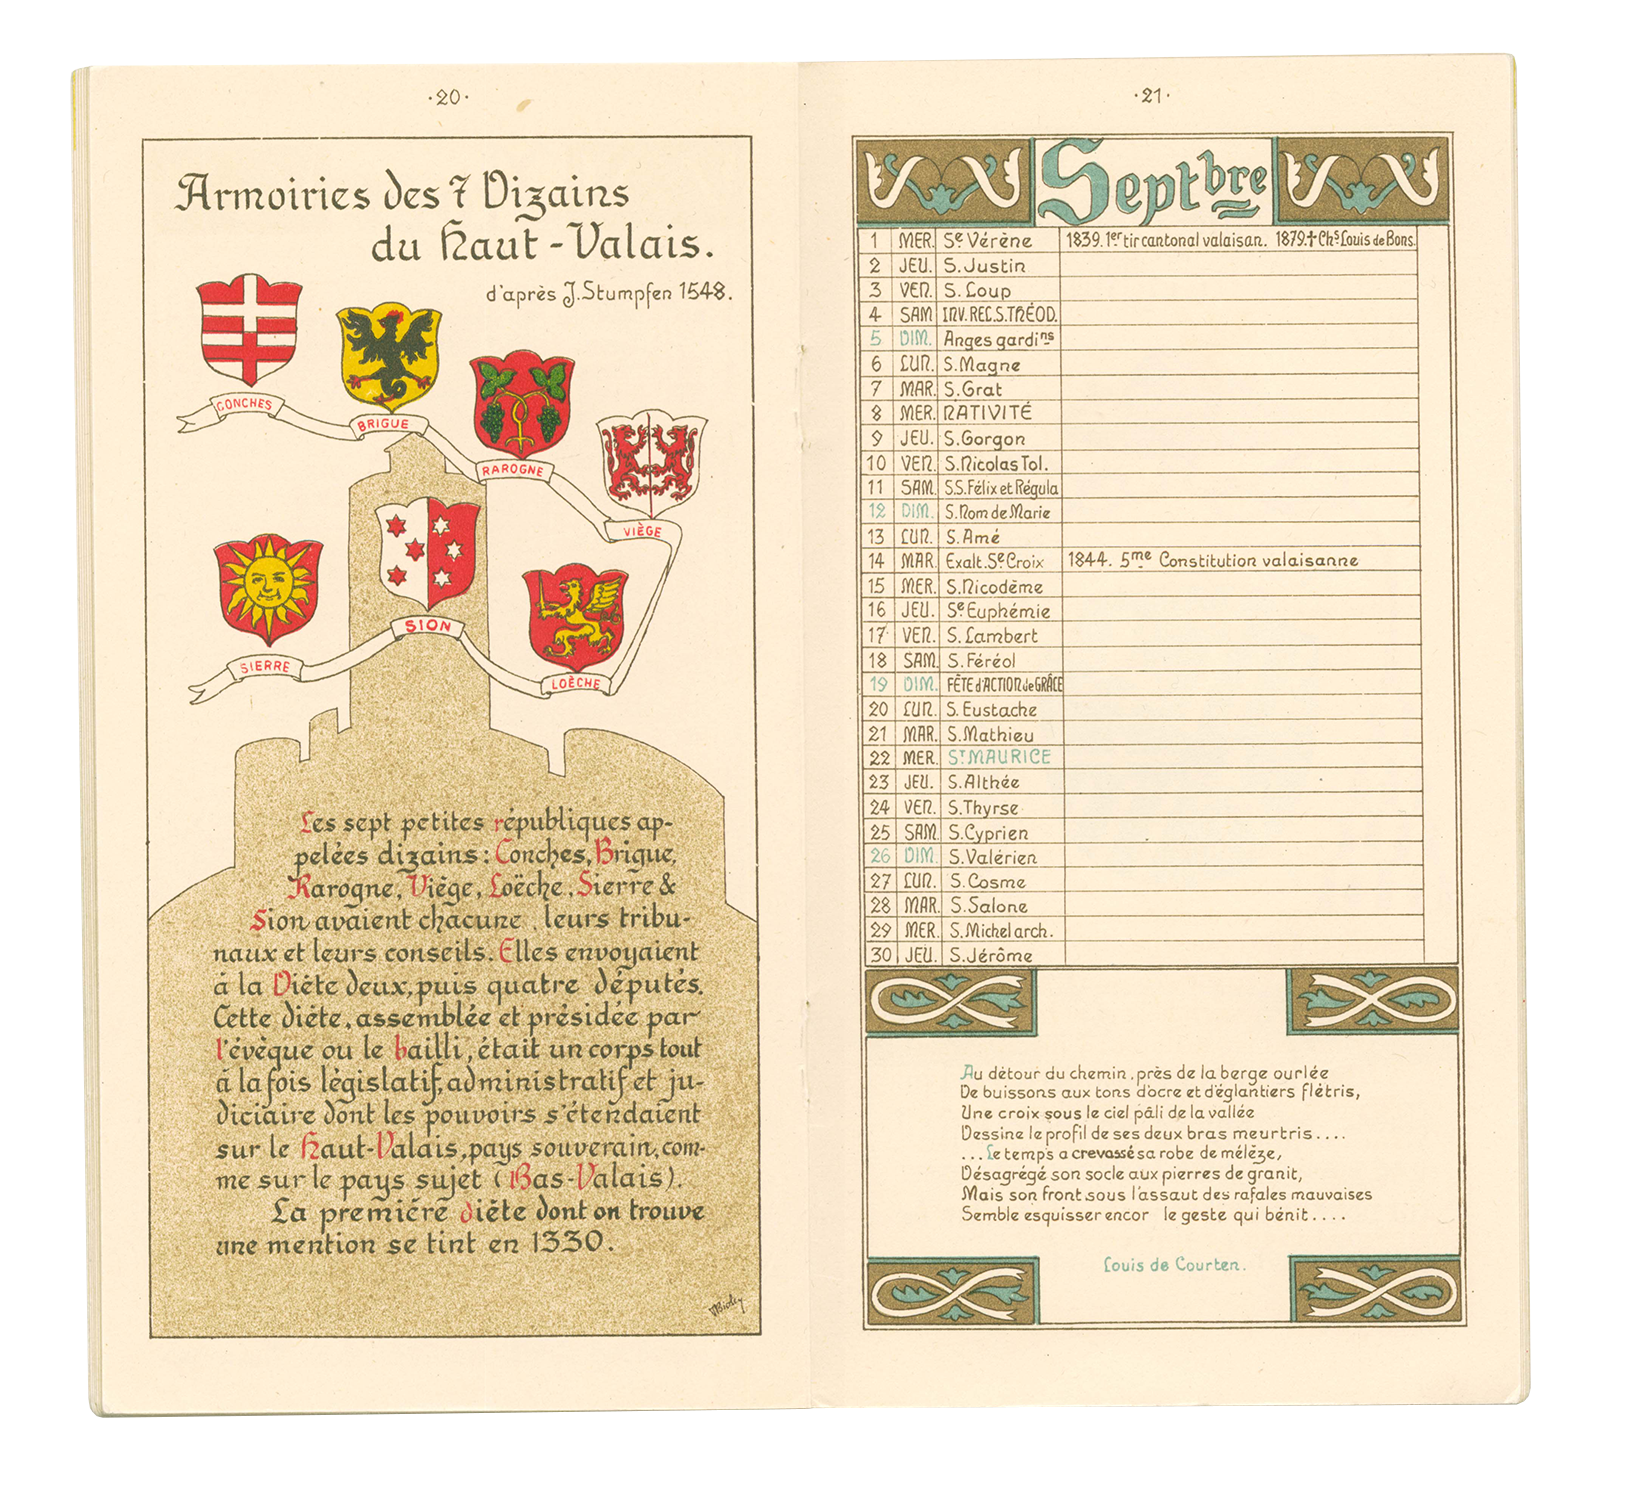 ·20·
Armoiries des 7 Dizains
du Haut-Valais.
d'après J.Stumpfen 1548.
CONCHES
BRIGUE
RAROGNE
VIÈGE
SION
SIERRE
LOÈCHE
Les sept petites républiques ap-
pelées dizains: Conches, Brigue,
Rarogne, Viège, Loëche, Sierre &
Sion avaient chacune leurs tribu-
naux et leurs conseils. Elles envoyaient
à la Diéte deux, puis quatre députés.
Cette diéte, assemblée et présidée par
l'évèque ou le bailli, était un corps tout
à la fois législatif, administratif et ju-
diciaire dont les pouvoirs s'étendaient
sur le Haut-Valais, pays souverain, com-
me sur le pays sujet (Bas-Valais).
La premiére diéte dont on trouve
une mention se tint en 1330.
·21·
Septbre
1 MER. Se Vérène 1839. 1er tir cantonal valaisan. 1879. † Chs Louis de Bons.
2 JEU. S. Justin
3 VEN. S. Loup
4 SAM INV. REC. S. THÉOD.
5 DIM. Anges gardins
6 LUN. S. Magne
7 MAR. S. Grat
8 MER. NATIVITÉ
9 JEU. S. Gorgon
10 VEN. S. Nicolas Tol.
11 SAM. S.S. Félix et Régula
12 DIM. S. Nom de Marie
13 LUN. S. Amé
14 MAR. Exalt. Se Croix 1844. 5me Constitution valaisanne
15 MER. S. Nicodème
16 JEU. Se Euphémie
17 VEN. S. Lambert
18 SAM. S. Féréol
19 DIM. FÊTE d'ACTION de GRÂCE
20 LUN. S. Eustache
21 MAR. S. Mathieu
22 MER. ST MAURICE
23 JEU. S. Althée
24 VEN. S. Thyrse
25 SAM. S. Cyprien
26 DIM. S. Valérien
27 LUN. S. Cosme
28 MAR. S. Salone
29 MER. S. Michel arch.
30 JEU. S. Jérôme
Au détour du chemin, près de la berge ourlée
De buissons aux tons d'ocre et d'églantiers flétris,
Une croix sous le ciel pâli de la vallée
Dessine le profil de ses deux bras meurtris....
...Le temps a crevassé sa robe de mélèze,
Désagrégé son socle aux pierres de granit,
Mais son front sous l'assaut des rafales mauvaises
Semble esquisser encor le geste qui bénit....
Louis de Courten.